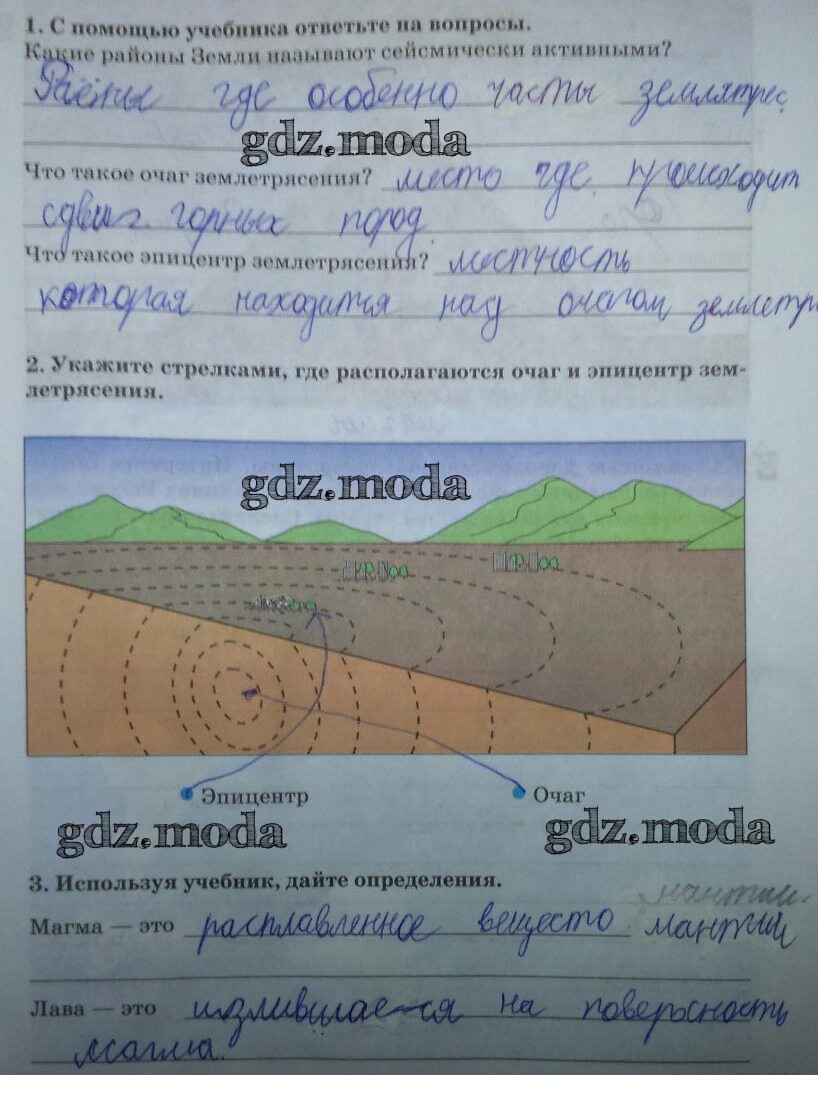 1. С помощью учебника ответьте на вопросы.
Какие районы Земли называют сейсмически активными?
где особенно часты землятрес
gdz.moda
Что такое очаг землетрясения? место где происходит
сдвиг горных пород
Что такое эпицентр землетрясения? местность
которая находится над очагом землетр
2. Укажите стрелками, где располагаются очаг и эпицентр зем-
летрясения.
gdz.moda
Эпицентр Очаг
gdz.moda gdz.moda
3. Используя учебник, дайте определения.
мантии.
Магма — это расплавленное вещесто мантии
Лава — это на поверхность
магма.